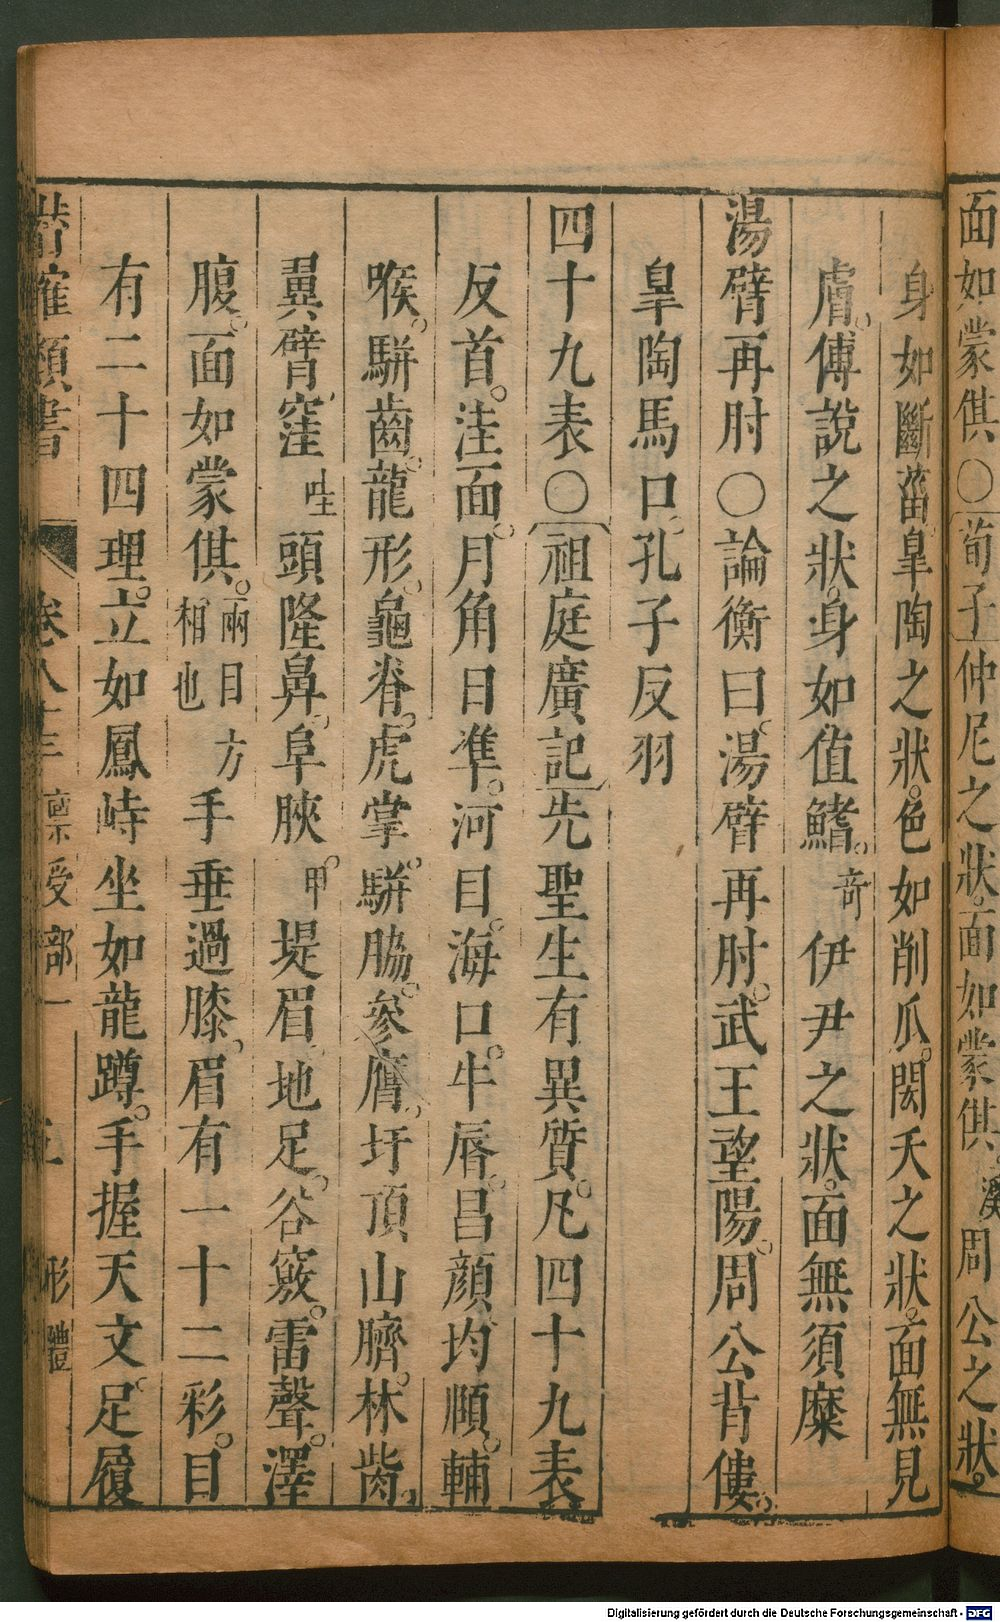 面如蒙倛○荀子仲尼之狀面如蒙倛周公之狀
身如斷菑皐陶之狀色如削瓜閎夭之狀面無見
膚傅說之狀身如值鰭奇伊尹之狀面無須糜
湯臂再肘○論衡曰湯臂再肘武王望陽周公背僂
皐陶馬口孔子反羽
四十九表○祖庭廣記先聖生有異質凡四十九表
反首洼面月角日準河目海口牛唇昌顏均頤輔
喉駢齒龍形龜脊虎掌駢脇參膺圩頂山臍林胔
翼臂窪哇頭隆鼻阜脥甲堤眉地足谷竅雷聲澤
腹面如蒙倛兩目方相也手垂過膝眉有一十二彩目
有二十四理立如鳳峙坐如龍蹲手握天文足履
類書 卷八十三 稟受部一 形體
Digitalisierung gefördert durch die Deutsche Forschungsgemeinschaft - DFG